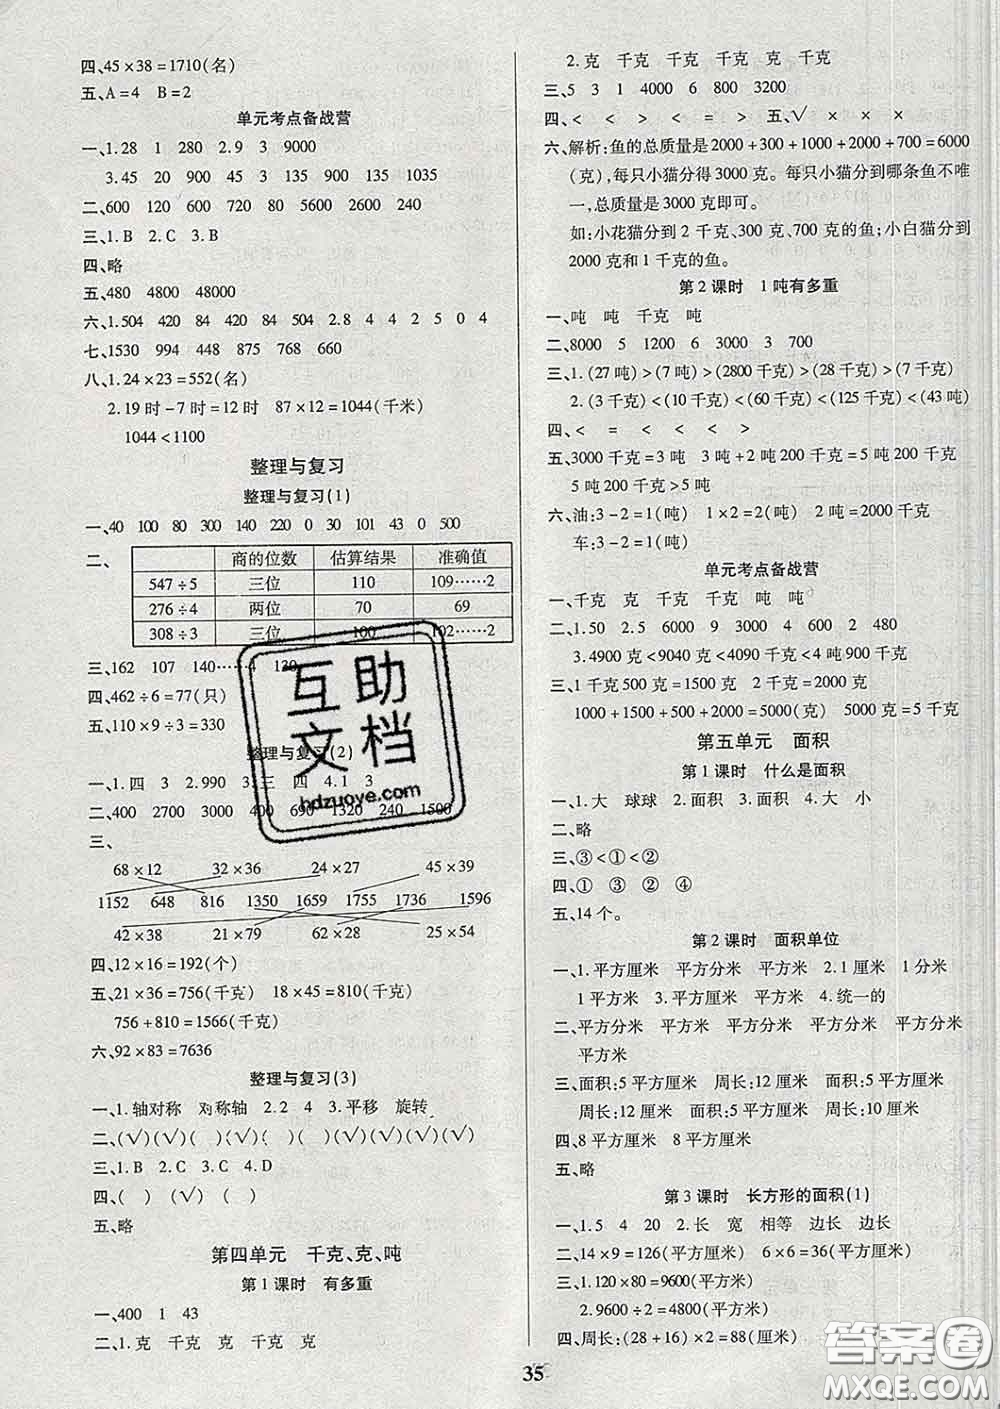 四、45×38=1710(名)
五、A=4 B=2
单元考点备战营
一、1.28 1 280 2.9 3 9000
3.45 20 900 45 3 135 900 135 1035
二、600 120 600 720 80 5600 2600 240
三、1.B 2.C 3.B
四、略
五、480 4800 48000
六、1.504 420 84 420 84 504 2.8 4 4 2 5 0 4
七、1530 994 448 875 768 660
八、1.24×23=552(名)
2.19时-7时=12时 87×12=1044(千米)
1044<1100
整理与复习
整理与复习(1)
一、40 100 80 300 140 220 0 30 101 43 0 500
二、
商的位数 估算结果 准确值
547÷5 三位 110 109……2
276÷4 两位 70 69
308÷3 三位 100 102……2
三、162 107 140……4 130
四、462÷6=77(只)
五、110×9÷3=330
整理与复习(2)
一、1.四 3 2.990 3.三 四 4.1 3
二、400 2700 3000 400 690 1320 240 1500
三、
68×12 32×36 24×27 45×39
1152 648 816 1350 1659 1755 1736 1596
42×38 21×79 62×28 25×54
四、12×16=192(个)
五、21×36=756(千克) 18×45=810(千克)
756+810=1566(千克)
六、92×83=7636
整理与复习(3)
一、1.轴对称 对称轴 2.2 4 3.平移 旋转
二、(√)(√)( )(√)( )(√)(√)(√)(√)
三、1.B 2.C 3.C 4.D
四、( ) (√) ( )
五、略
第四单元 千克、克、吨
第1课时 有多重
一、400 1 43
二、1.克 千克 克 千克 千克
2.克 千克 千克 千克 克 千克
三、5 3 1 4000 6 800 3200
四、< < > < = < 五、√ × × ×
六、解析:鱼的总质量是2000+300+1000+2000+700=6000
(克),每只小猫分得3000克。每只小猫分到哪条鱼不唯
一,总质量是3000克即可。
如:小花猫分到2千克、300克、700克的鱼;小白猫分到
2000克和1千克的鱼。
第2课时 1吨有多重
一、吨 吨 千克 吨
二、8000 5 1200 6 3000 3 700
三、1.(27吨)>(7吨)>(2800千克)>(28千克)>(7千克)
2.(3千克)<(10千克)<(60千克)<(125千克)<(43吨)
四、< = < < < >
五、3000千克=3吨 3吨+2吨=5吨 5吨=5000千克
5吨200千克>5吨
六、油:3-2=1(吨) 1×2=2(吨) 2吨=2000千克
车:3-2=1(吨)
单元考点备战营
一、千克 克 千克 千克 吨 吨
二、1.50 2.5 6000 9 3000 4 2 480
3.4900克<9040克<4090千克<4吨900千克
三、1千克500克=1500克 2千克=2000克
1000+1500+500+2000=5000(克) 5000克=5千克
第五单元 面积
第1课时 什么是面积
一、1.大 球球 2.面积 3.面积 4.大 小
二、略
三、③<①<②
四、① ③ ② ④
五、14个。
第2课时 面积单位
一、1.平方厘米 平方分米 平方米 2.1厘米 1分米
1平方米 3.平方厘米 平方分米 4.统一的
二、平方分米 平方米 平方分米 平方厘米 平方米
平方米
三、面积:5平方厘米 周长:12厘米 面积:5平方厘米
周长:12厘米 面积:5平方厘米 周长:10厘米
四、8平方厘米 8平方厘米
五、略
第3课时 长方形的面积(1)
一、1.5 4 20 2.长 宽 相等 边长 边长
二、14×9=126(平方厘米) 6×6=36(平方厘米)
三、1.120×80=9600(平方米)
2.9600÷2=4800(平方米)
四、周长:(28+16)×2=88(厘米)
35
互助
文档
hdzuoye.com
答案圈
MXQE.COM